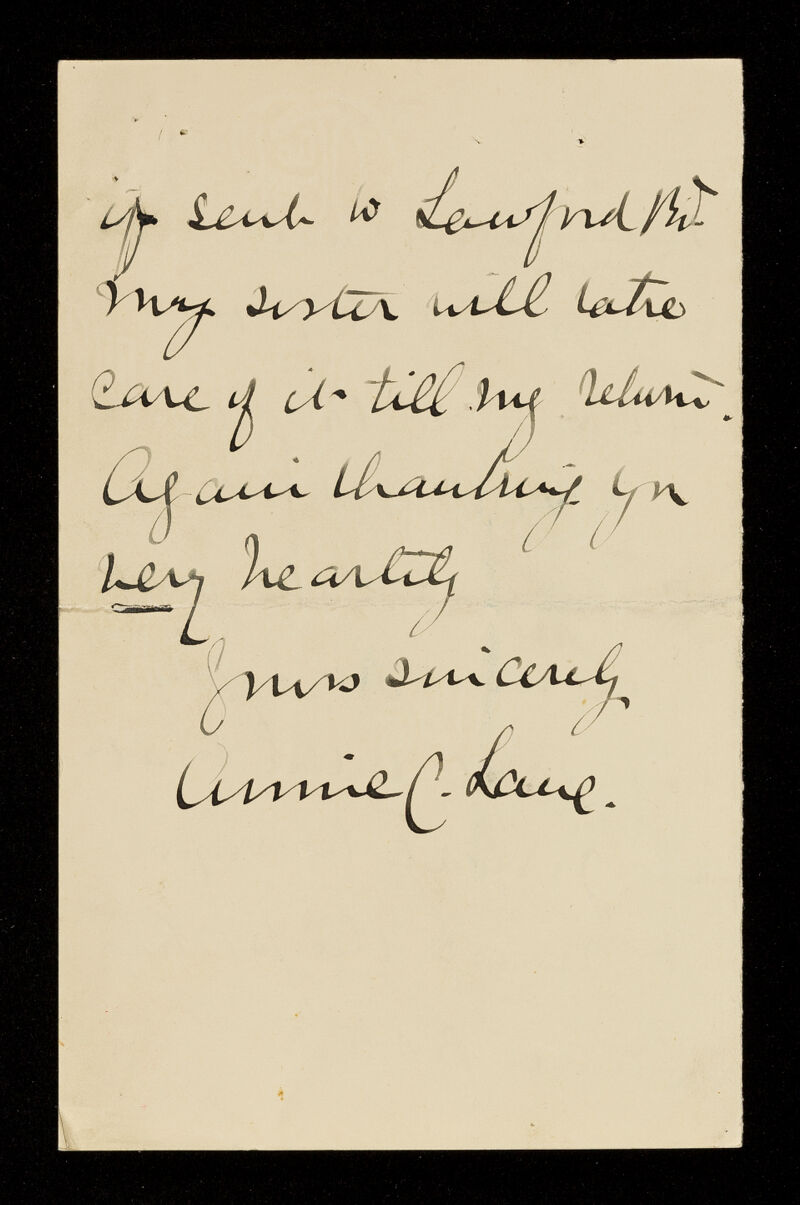 if sent to Lawford Rd.
my sister will take
care of it till my return.
Again thanking you
very heartily
Yours sincerely
Annie C. Lane.